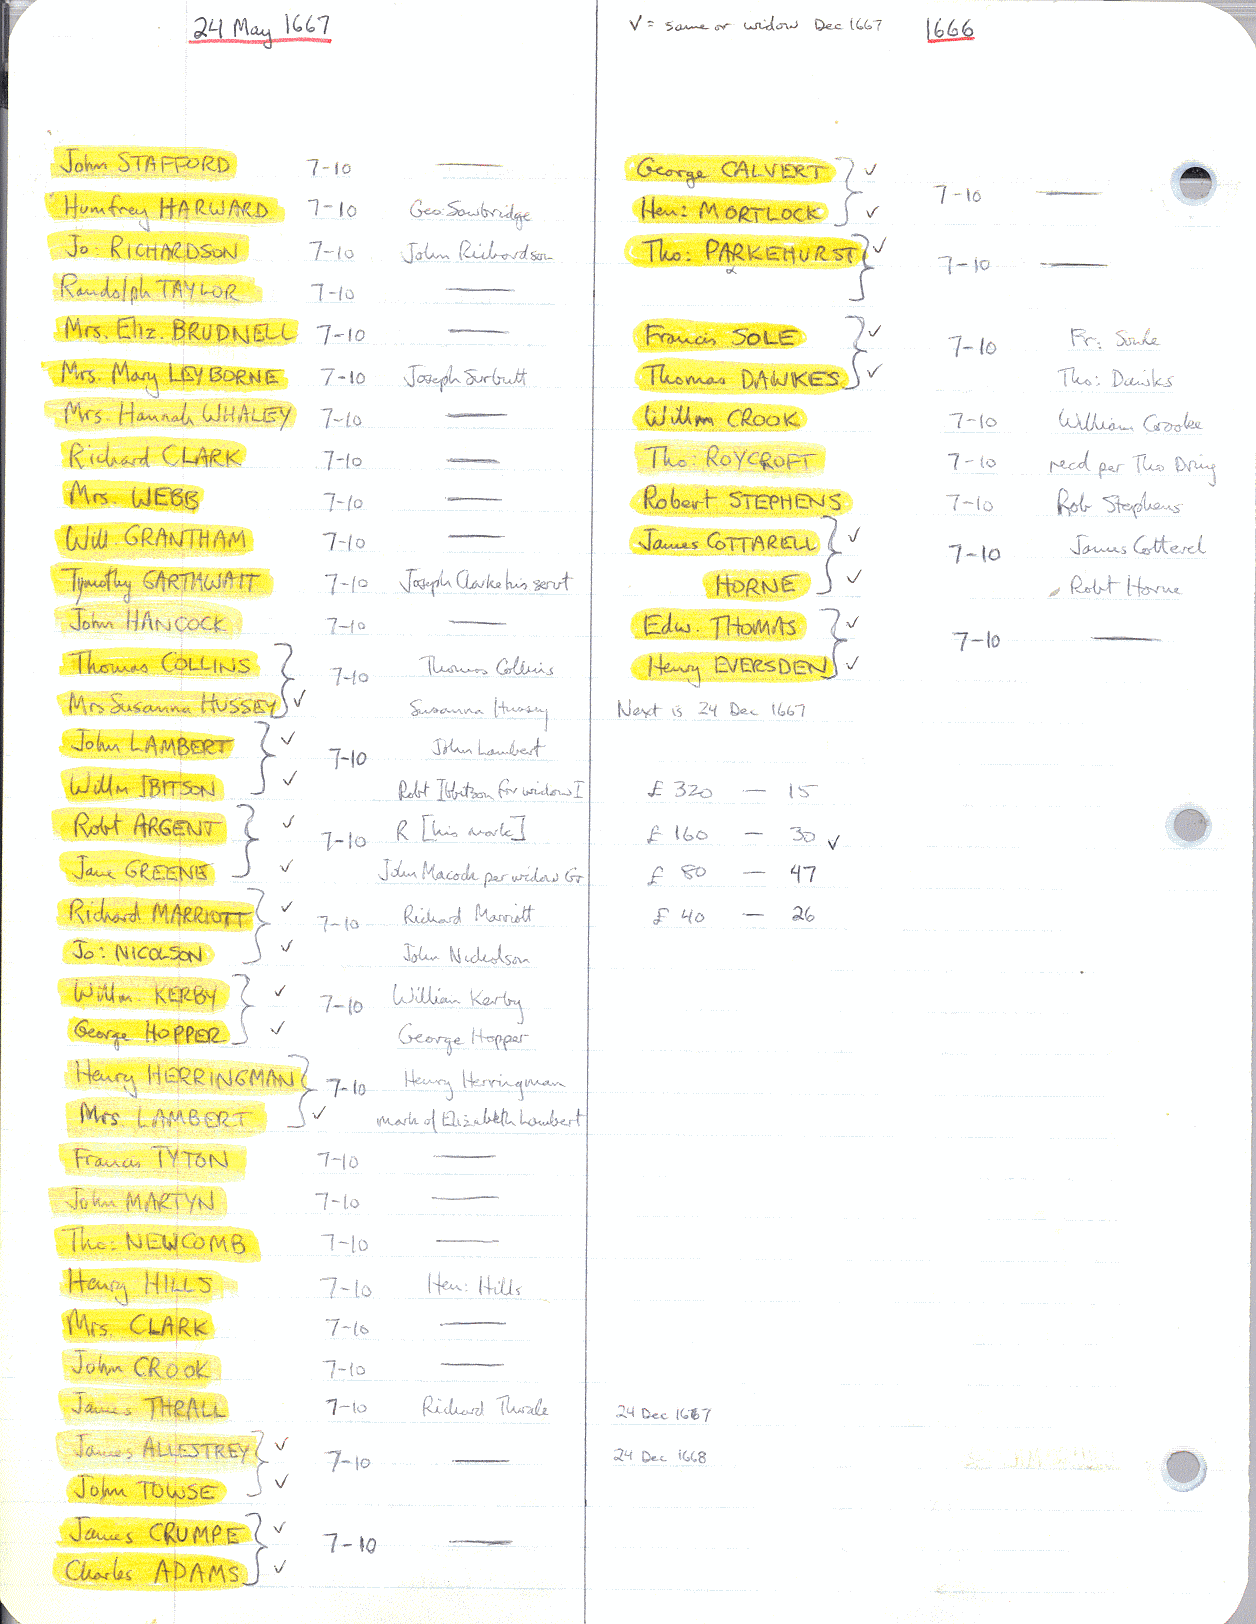 24 May 1667
John STAFFORD 7-10 —
Humfrey HARWARD 7-10 Geo: Sawbridge
Jo: RICHARDSON 7-10 John Richardson
Randolph TAYLOR 7-10 —
Mrs. Eliz. BRUDNELL 7-10 —
Mrs. Mary LEYBORNE 7-10 Joseph Surbutt
Mrs. Hannah WHALEY 7-10 —
Richard CLARK 7-10 —
Mrs. WEBB 7-10 —
Will. GRANTHAM 7-10 —
Tymothy GARTHWAIT 7-10 Joseph Clarke his servt
John HANCOCK 7-10 —
Thomas COLLINS } 7-10 Thomas Collins
Mrs Susanna HUSSEY } ✓ Susanna Hussey
John LAMBERT } ✓ 7-10 John Lambert
Willm IBITSON } ✓ Robt Ibbitson for widow I
Robt ARGENT } ✓ 7-10 R [his mark]
Jane GREENE } ✓ John Macock per widow Gr
Richard MARRIOTT } ✓ 7-10 Richard Marriott
Jo: NICOLSON } ✓ John Nicholson
Willm. KERBY } ✓ 7-10 William Kerby
George HOPPER } ✓ George Hopper
Henry HERRINGMAN } 7-10 Henry Herringman
Mrs. LAMBERT } ✓ mark of Elizabeth Lambert
Francis TYTON 7-10 —
John MARTYN 7-10 —
Tho: NEWCOMB 7-10 —
Henry HILLS 7-10 Hen: Hills
Mrs. CLARK 7-10 —
John CROOK 7-10 —
James THRALL 7-10 Richard Thrale
James ALLESTREY } ✓ 7-10 —
John TOWSE } ✓
James CRUMPE } ✓ 7-10 —
Charles ADAMS } ✓
✓ = same or widow Dec 1667 1666
George CALVERT } ✓ 7-10 —
Hen: MORTLOCK } ✓
Tho: PARKEHURST } ✓ 7-10 —
Francis SOLE } ✓ 7-10 Fr:
Thomas DAWKES } ✓ Tho:
Willm CROOK 7-10 William Crooke
Tho: ROYCROFT 7-10 recd per Tho Dring
Robert STEPHENS 7-10 Rob Stephens
James COTTARELL } ✓ 7-10 James Cotterel
HORNE } ✓ Robt Horne
Edw. THOMAS } ✓ 7-10 —
Henry EVERSDEN } ✓
Next is 24 Dec 1667
£ 320 — 15
£ 160 — 30 ✓
£ 80 — 47
£ 40 — 26
24 Dec 1667
24 Dec 1668